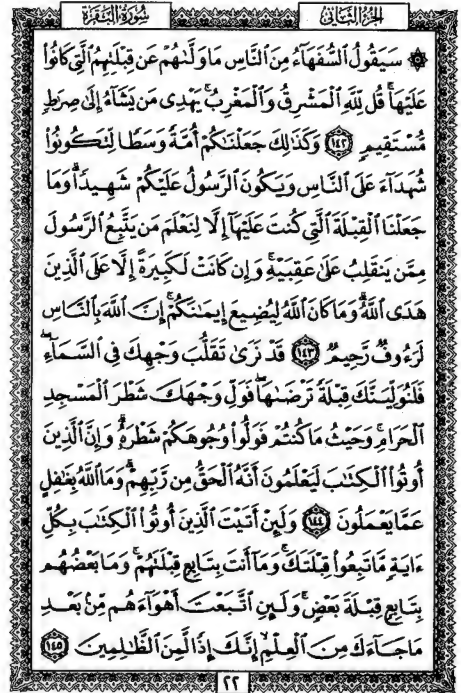 الجزء الثاني
سورة البقرة
۞ سَيَقُولُ ٱلسُّفَهَآءُ مِنَ ٱلنَّاسِ مَا وَلَّىٰهُمْ عَن قِبْلَتِهِمُ ٱلَّتِى كَانُوا۟
عَلَيْهَا ۚ قُل لِّلَّهِ ٱلْمَشْرِقُ وَٱلْمَغْرِبُ ۚ يَهْدِى مَن يَشَآءُ إِلَىٰ صِرَٰطٍ
مُّسْتَقِيمٍ ١٤٢ وَكَذَٰلِكَ جَعَلْنَٰكُمْ أُمَّةً وَسَطًا لِّتَكُونُوا۟
شُهَدَآءَ عَلَى ٱلنَّاسِ وَيَكُونَ ٱلرَّسُولُ عَلَيْكُمْ شَهِيدًا ۗ وَمَا
جَعَلْنَا ٱلْقِبْلَةَ ٱلَّتِى كُنتَ عَلَيْهَآ إِلَّا لِنَعْلَمَ مَن يَتَّبِعُ ٱلرَّسُولَ
مِمَّن يَنقَلِبُ عَلَىٰ عَقِبَيْهِ ۚ وَإِن كَانَتْ لَكَبِيرَةً إِلَّا عَلَى ٱلَّذِينَ
هَدَى ٱللَّهُ ۗ وَمَا كَانَ ٱللَّهُ لِيُضِيعَ إِيمَٰنَكُمْ ۚ إِنَّ ٱللَّهَ بِٱلنَّاسِ
لَرَءُوفٌ رَّحِيمٌ ١٤٣ قَدْ نَرَىٰ تَقَلُّبَ وَجْهِكَ فِى ٱلسَّمَآءِ ۖ
فَلَنُوَلِّيَنَّكَ قِبْلَةً تَرْضَىٰهَا ۚ فَوَلِّ وَجْهَكَ شَطْرَ ٱلْمَسْجِدِ
ٱلْحَرَامِ ۚ وَحَيْثُ مَا كُنتُمْ فَوَلُّوا۟ وُجُوهَكُمْ شَطْرَهُۥ ۗ وَإِنَّ ٱلَّذِينَ
أُوتُوا۟ ٱلْكِتَٰبَ لَيَعْلَمُونَ أَنَّهُ ٱلْحَقُّ مِن رَّبِّهِمْ ۗ وَمَا ٱللَّهُ بِغَٰفِلٍ
عَمَّا يَعْمَلُونَ ١٤٤ وَلَئِنْ أَتَيْتَ ٱلَّذِينَ أُوتُوا۟ ٱلْكِتَٰبَ بِكُلِّ
ءَايَةٍ مَّا تَبِعُوا۟ قِبْلَتَكَ ۚ وَمَآ أَنتَ بِتَابِعٍ قِبْلَتَهُمْ ۚ وَمَا بَعْضُهُم
بِتَابِعٍ قِبْلَةَ بَعْضٍ ۚ وَلَئِنِ ٱتَّبَعْتَ أَهْوَآءَهُم مِّنۢ بَعْدِ
مَا جَآءَكَ مِنَ ٱلْعِلْمِ ۙ إِنَّكَ إِذًا لَّمِنَ ٱلظَّٰلِمِينَ ١٤٥
٢٢